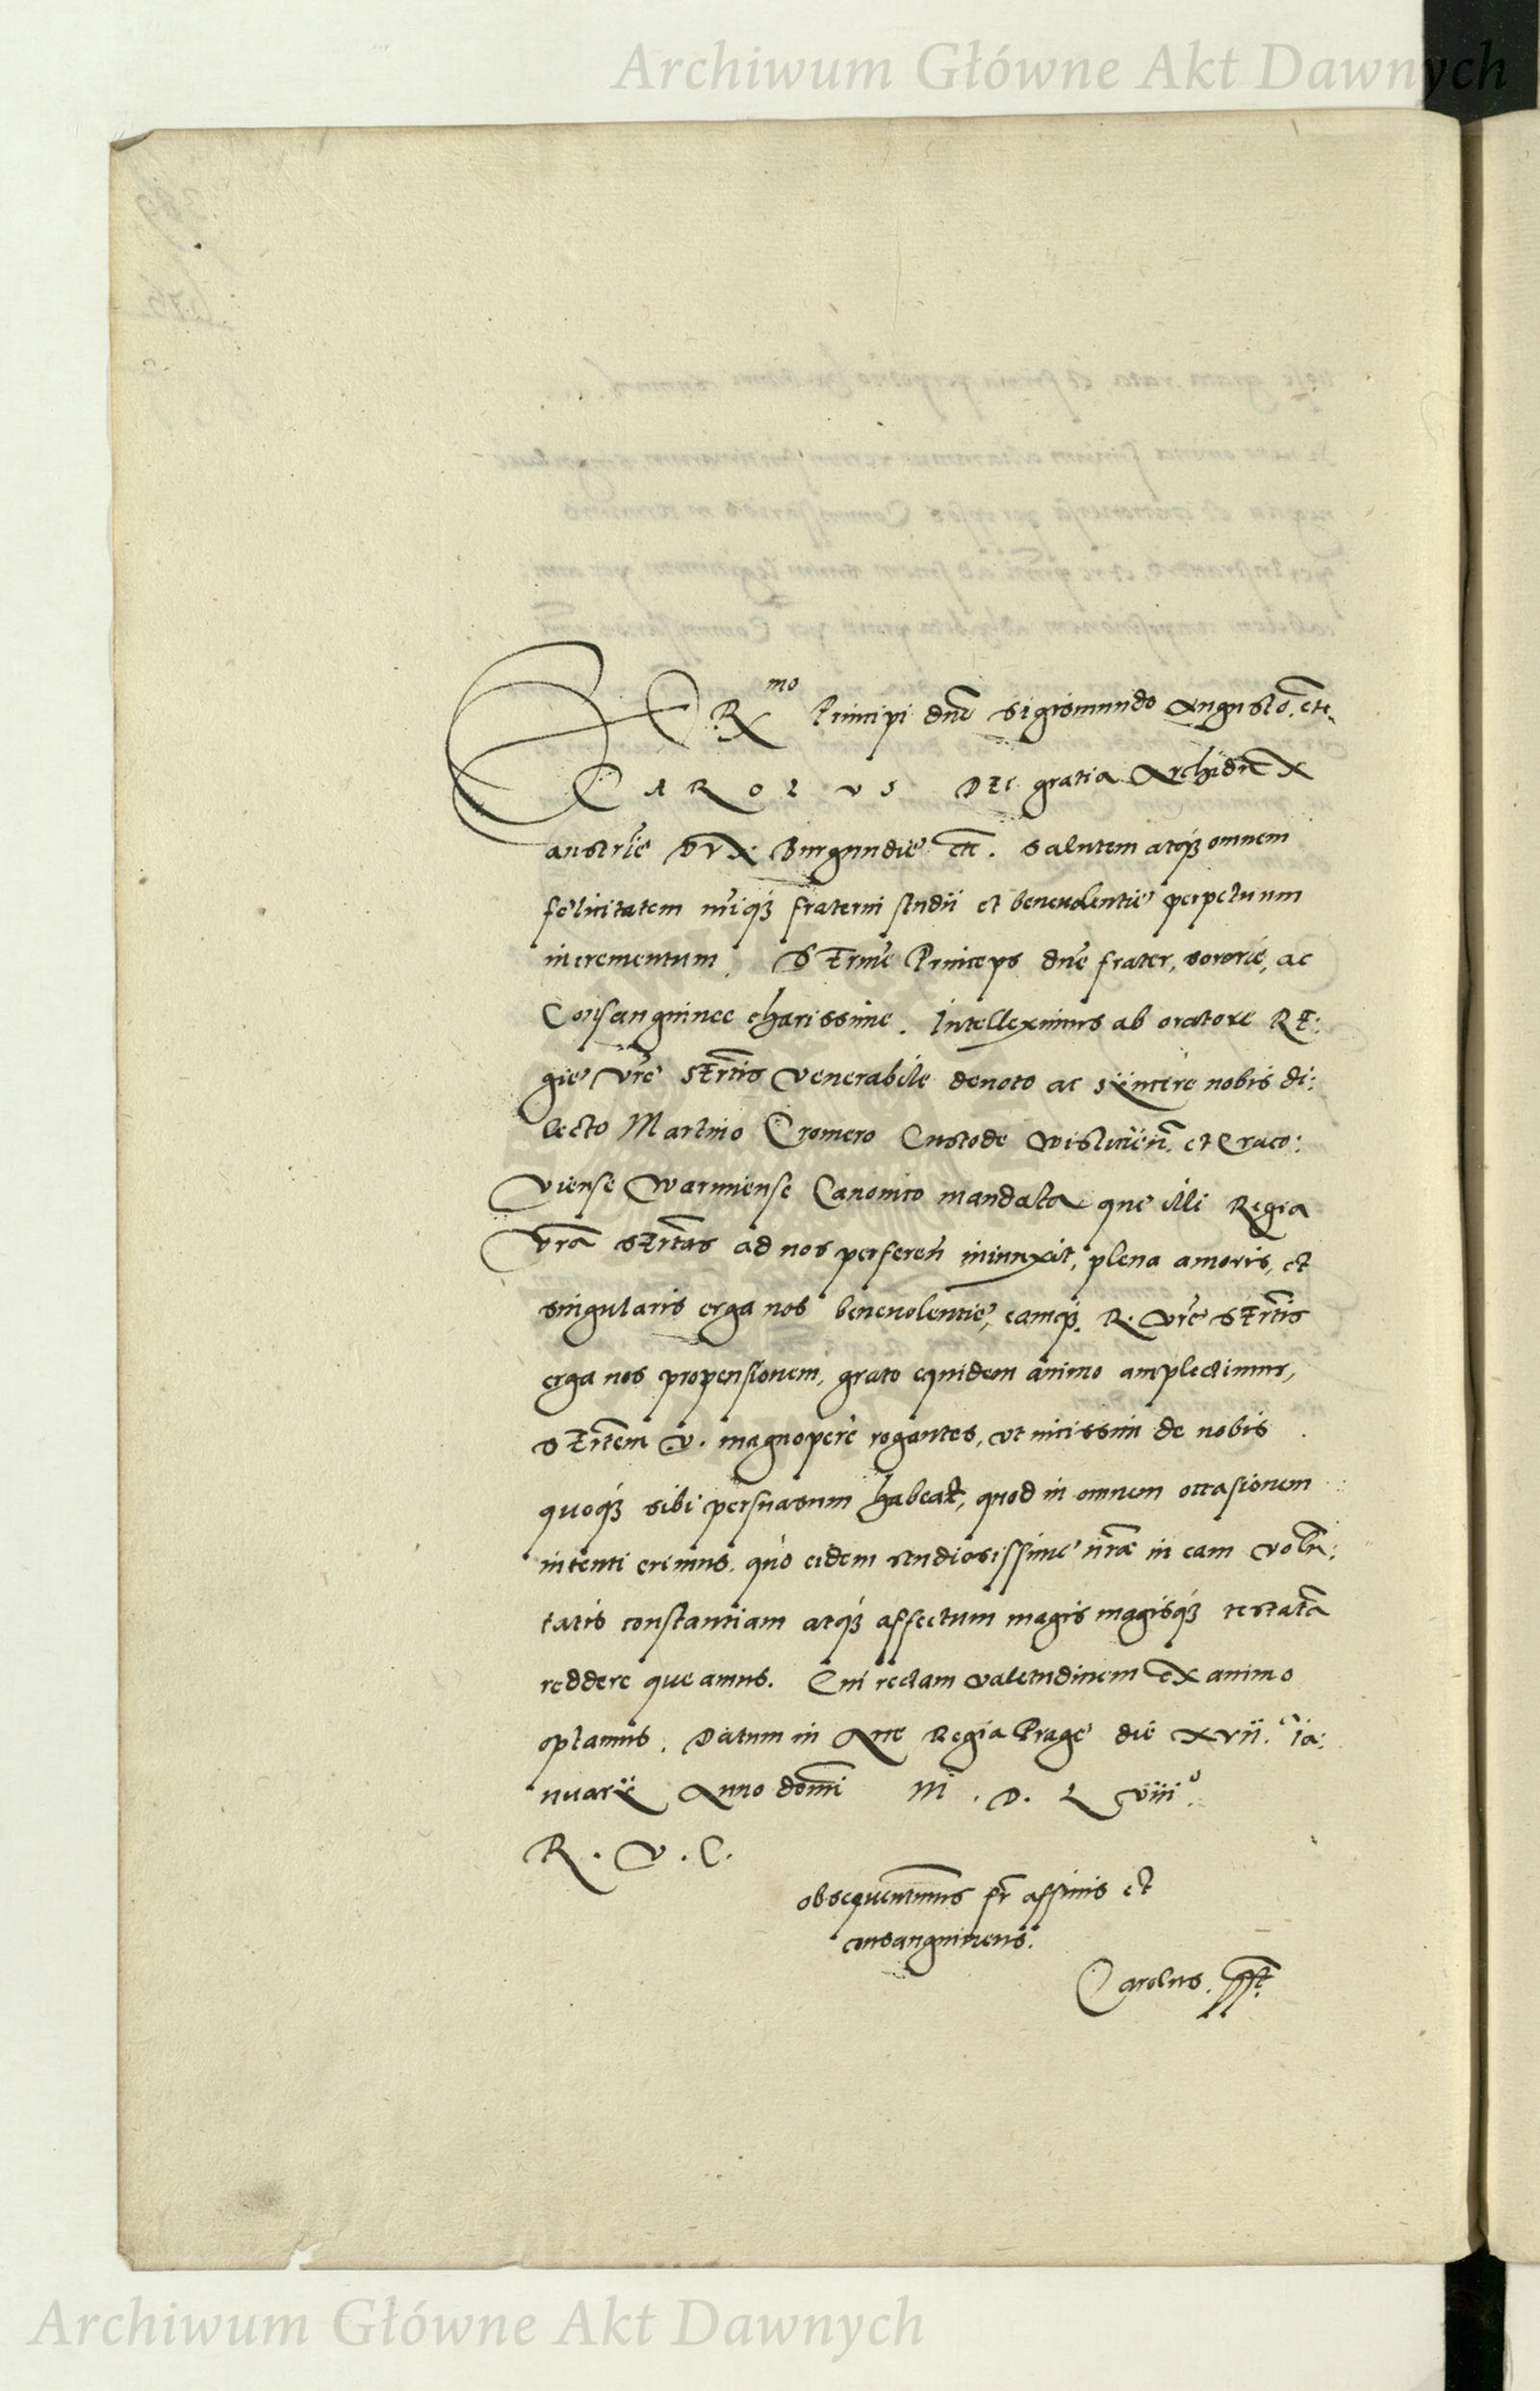 Archiwum Główne Akt Dawnych
SERmo Principi dnō Sigismundo Augusto. etc.
CAROLVS DEI gratia Archidux
Austrię DVX Burgundię etc. Salutem atq3 omnem
felicitatem mūiq3 fraterni studii et beneuolentię perpetuum
incrementum. SErmē Princeps dnē frater, sororie, ac
Consanguinee charissime. Intelleximus ab oratore RE:
gię Vrē SErtis Venerabile deuoto ac syncere nobis di:
lecto Martino Cromero Custode Wisliciēn. et Craco:
Viense Warmiense Canonico mandata que illi Regia
Vrā SErtas ad nos perferēn iniunxit, plena amoris, et
singularis erga nos beneuolentię, eamq3. R. Vrē SErtis
erga nos propensionem, grato equidem animo amplectimur,
SErtem V. magnopere rogantes, vt uicissim de nobis
quoq3 sibi persuasum habeat, quod in omnem occasionem
intenti erimus, quo eidem studiosissime nrāe in eam Volū:
tatis constantiam atq3 affectum magis magisq3 testatā
reddere queamus. Cui rectam valetudinem ex animo
optamus. Datum in Arce Regia Pragę die XVii. Ia:
nuarii Anno domī M. D. L Viiio.
R. V. C.
obsequentimus fr affinis et
consanguineus.
Carolus. sst.
Archiwum Główne Akt Dawnych